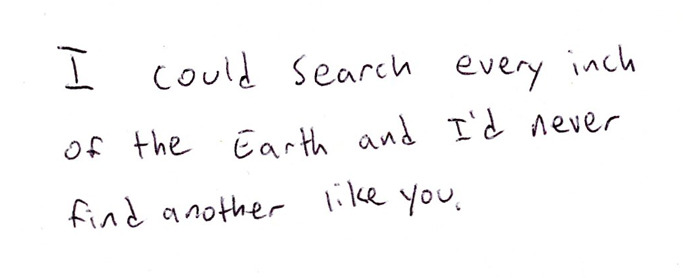 I could search every inch
of the Earth and I'd never
find another like you.